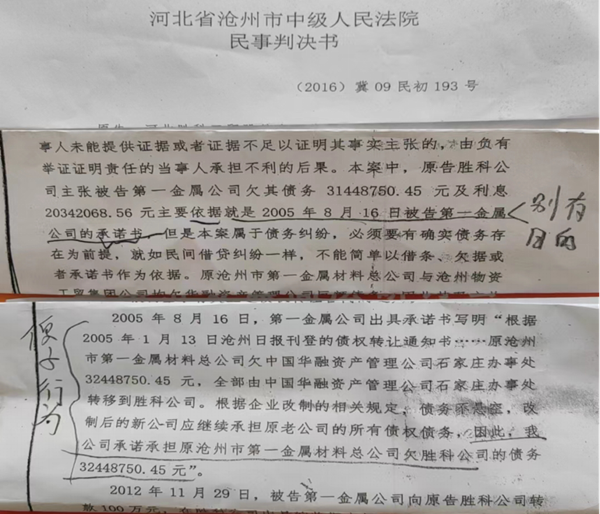 河北省沧州市中级人民法院
民事判决书
(2016)冀 09 民初 193 号
事人未能提供证据或者证据不足以证明其事实主张的,由负有
举证证明责任的当事人承担不利的后果。本案中,原告胜科公
司主张被告第一金属公司欠其债务 31448750.45 元及利息
20342068.56 元主要依据就是 2005 年 8 月 16 日被告第一金属
公司的承诺书。但是本案属于债务纠纷,必须要有确实债务存
在为前提,就如民间借贷纠纷一样,不能简单以借条、欠据或
者承诺书作为依据。原沧州市第一金属材料总公司与沧州物资
别有
目的
2005 年 8 月 16 日,第一金属公司出具承诺书写明“根据
2005 年 1 月 13 日沧州日报刊登的债权转让通知书……原沧州
市第一金属材料总公司欠中国华融资产管理公司石家庄办事处
32448750.45 元,全部由中国华融资产管理公司石家庄办事处
转移到胜科公司。根据企业改制的相关规定,债务不悬空,改
制后的新公司应继续承担原老公司的所有债权债务,因此,我
公司承诺承担原沧州市第一金属材料总公司欠胜科公司的债务
32448750.45 元”。
2012 年 11 月 29 日,被告第一金属公司向原告胜科公司转
傻子行为